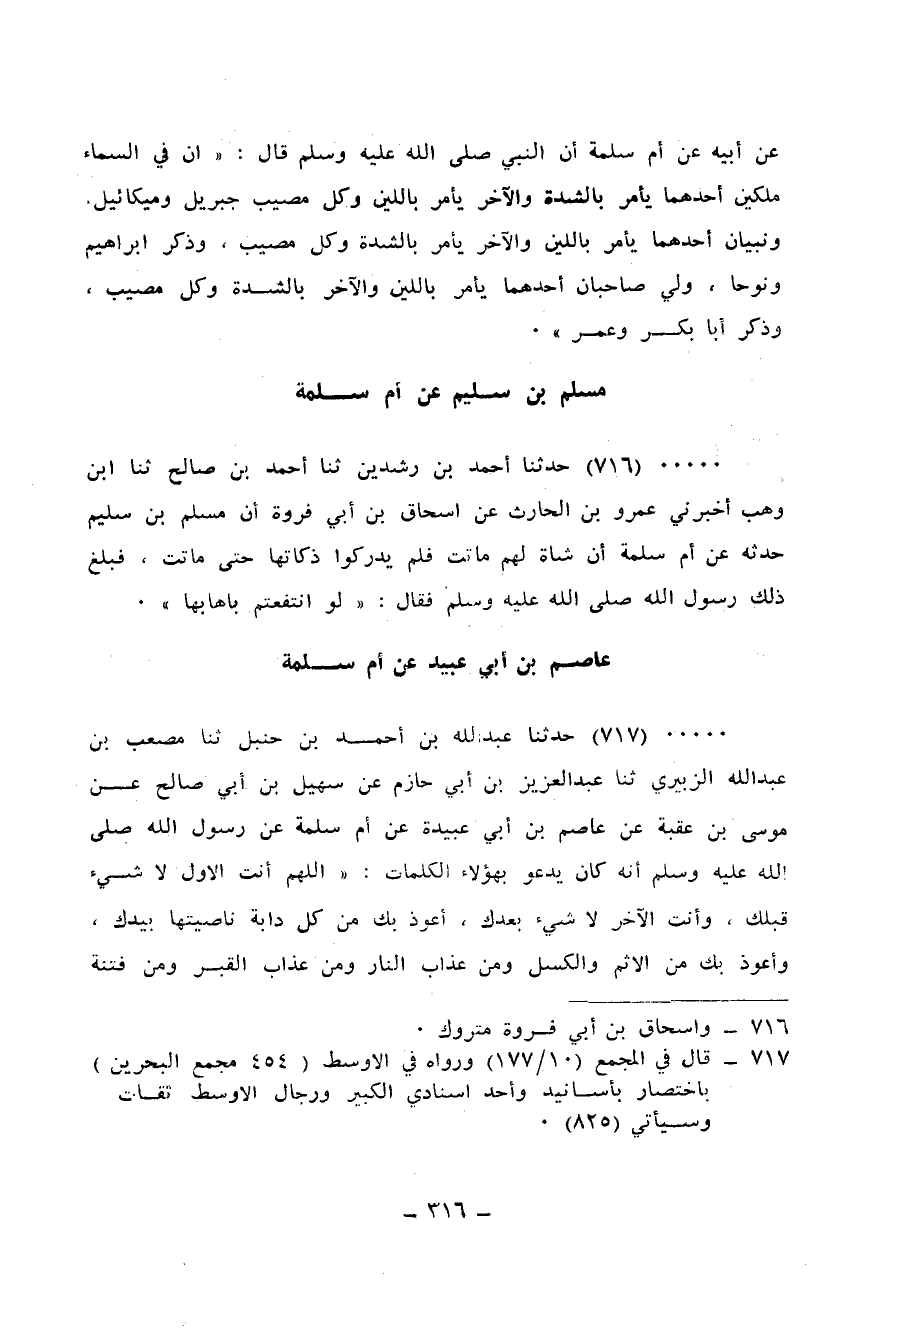 عن أبيه عن أم سلمة أن النبي صلى الله عليه وسلم قال : « ان في السماء
ملكين أحدهما يأمر بالشدة والآخر يأمر باللين وكل مصيب جبريل وميكائيل.
ونبيان أحدهما يأمر باللين والآخر يأمر بالشدة وكل مصيب ، وذكر ابراهيم
ونوحا ، ولي صاحبان أحدهما يأمر باللين والآخر بالشدة وكل مصيب ،
وذكر أبا بكر وعمر » .
مسلم بن سليم عن أم سلمة
..... (٧١٦) حدثنا أحمد بن رشدين ثنا أحمد بن صالح ثنا ابن
وهب أخبرني عمرو بن الحارث عن اسحاق بن أبي فروة أن مسلم بن سليم
حدثه عن أم سلمة أن شاة لهم ماتت فلم يدركوا ذكاتها حتى ماتت ، فبلغ
ذلك رسول الله صلى الله عليه وسلم فقال : « لو انتفعتم باهابها » .
عاصم بن أبي عبيد عن أم سلمة
..... (٧١٧) حدثنا عبدالله بن أحمد بن حنبل ثنا مصعب بن
عبدالله الزبيري ثنا عبدالعزيز بن أبي حازم عن سهيل بن أبي صالح عن
موسى بن عقبة عن عاصم بن أبي عبيدة عن أم سلمة عن رسول الله صلى
الله عليه وسلم أنه كان يدعو بهؤلاء الكلمات : « اللهم أنت الاول لا شيء
قبلك ، وأنت الآخر لا شيء بعدك ، أعوذ بك من كل دابة ناصيتها بيدك ،
وأعوذ بك من الاثم والكسل ومن عذاب النار ومن عذاب القبر ومن فتنة
٧١٦ - واسحاق بن أبي فروة متروك .
٧١٧ - قال في المجمع (١٧٧/١٠) ورواه في الاوسط ( ٤٥٤ مجمع البحرين )
باختصار بأسانيد وأحد اسنادي الكبير ورجال الاوسط ثقات
وسيأتي (٨٢٥) .
- ٣١٦ -